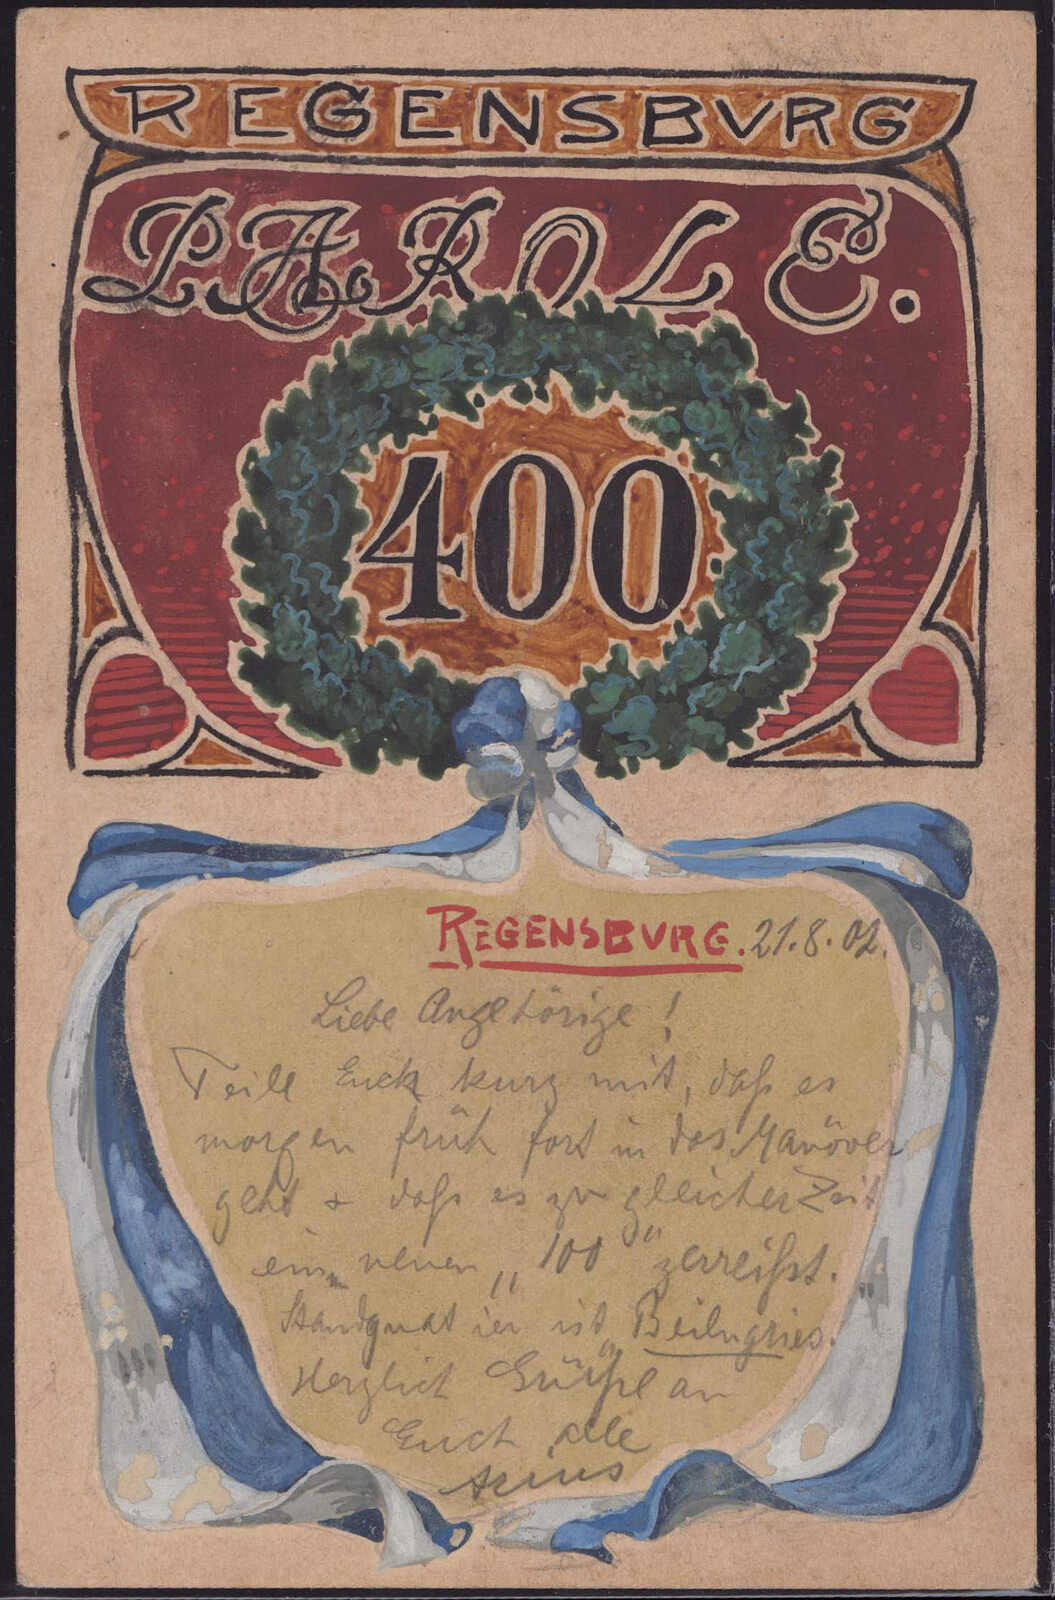 REGENSBVRG
PAROLE.
400
REGENSBVRG. 21.8.02.
Liebe Angehörige!
Teile Euch kurz mit, daß es
morgen früh fort in das Manöver
geht + daß es zu gleicher Zeit
ein neuen „100“ zerreißt.
Standquatier ist „Beilngries.
Herzlich Grüße an
Euch alle